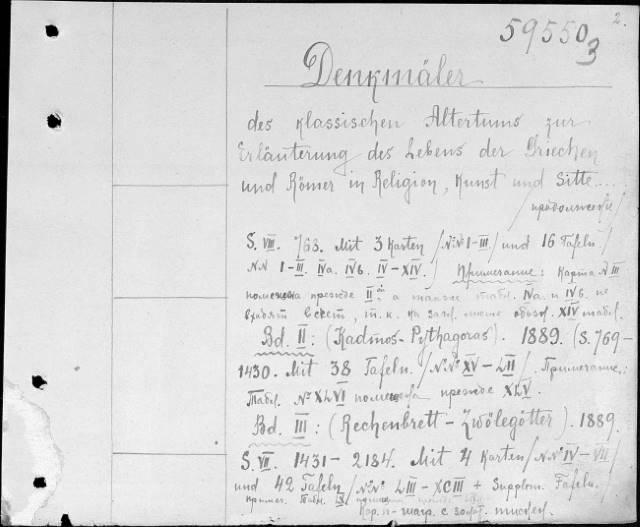 2.
59550
3
Denkmäler
des klassischen Altertums zur
Erläuterung des Lebens der Griechen
und Römer in Religion, Kunst und Sitte....
/продолжение/
S. VIII. 763. Mit 3 Karten /N.N. I-III/ und 16 Tafeln /
N.N I-III. IVa. IVб. IV-XIV./ Примечание: Карта N III
помещена прежде II, а также табл. IVa. и IVб. не
входят в счет, т.к. на загл. листе обозн. XIV табл.
Bd. II: (Kadmos-Pythagoras). 1889. (S. 769-
1430. Mit 38 Tafeln. /N.N. XV-LII/ Примечание:
Табл. N° XLVI помещена прежде XLV.
Bd. III: (Rechenbrett-Zwölegötter). 1889.
S. VII. 1431-2184. Mit 4 Karten /N.N° IV-VII/
und 42 Tafeln /N.N° LIII-XCIII + Supplem. Tafeln./
Примеч. Табл. прежде
Кор. п-шагр. с золот. тиснен.